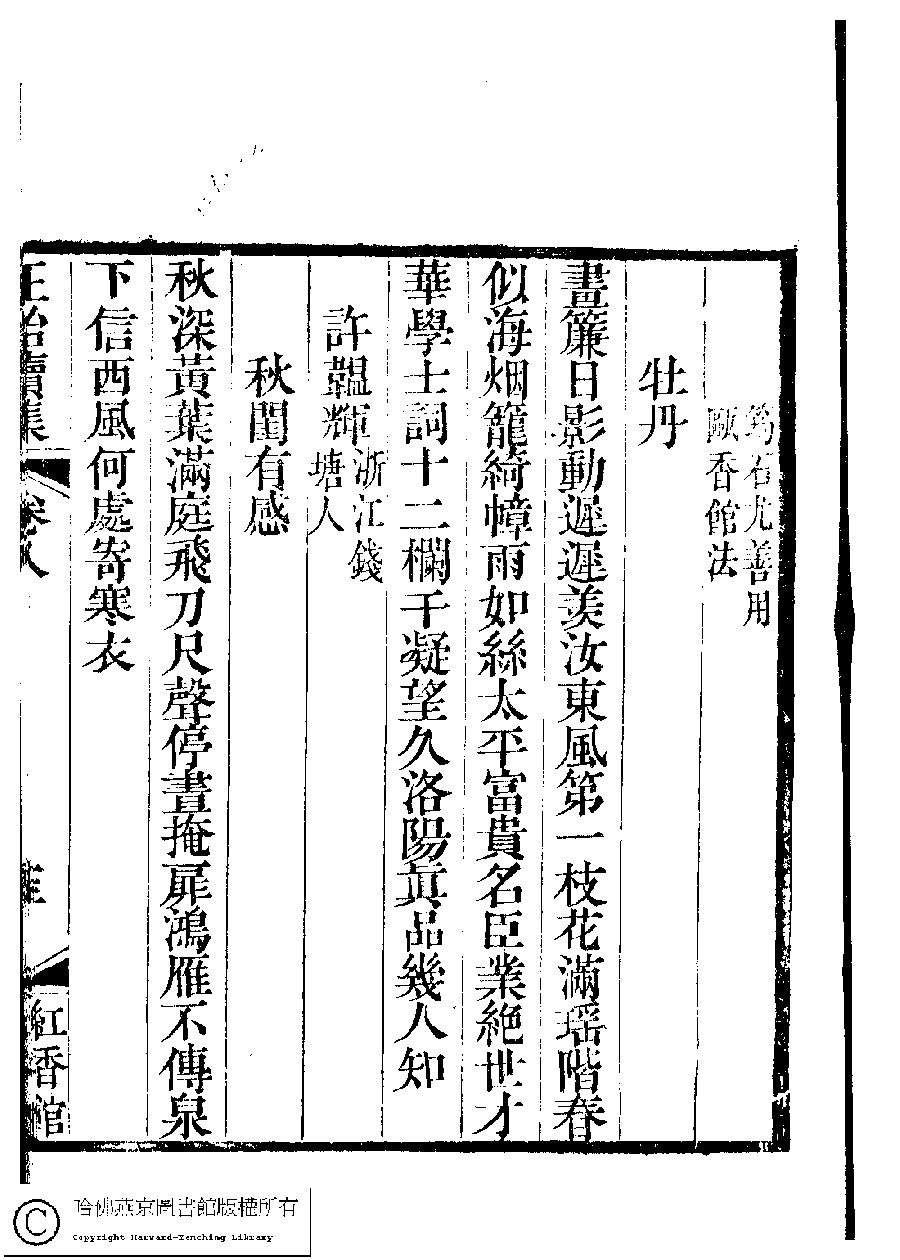 筠石尤善用
甌香館法
牡丹
畫簾日影動遲遲羨汝東風第一枝花滿瑶階春
似海烟籠綺幛雨如絲太平富貴名臣業絶世才
華學士詞十二欄干凝望久洛陽眞品幾人知
許韞輝浙江錢
塘人
秋閨有感
秋深黃葉滿庭飛刀尺聲停晝掩扉鴻雁不傳泉
下信西風何處寄寒衣
正始續集
卷八
紅香館
哈佛燕京圖書館版權所有
Copyright Harvard-Yenching Library